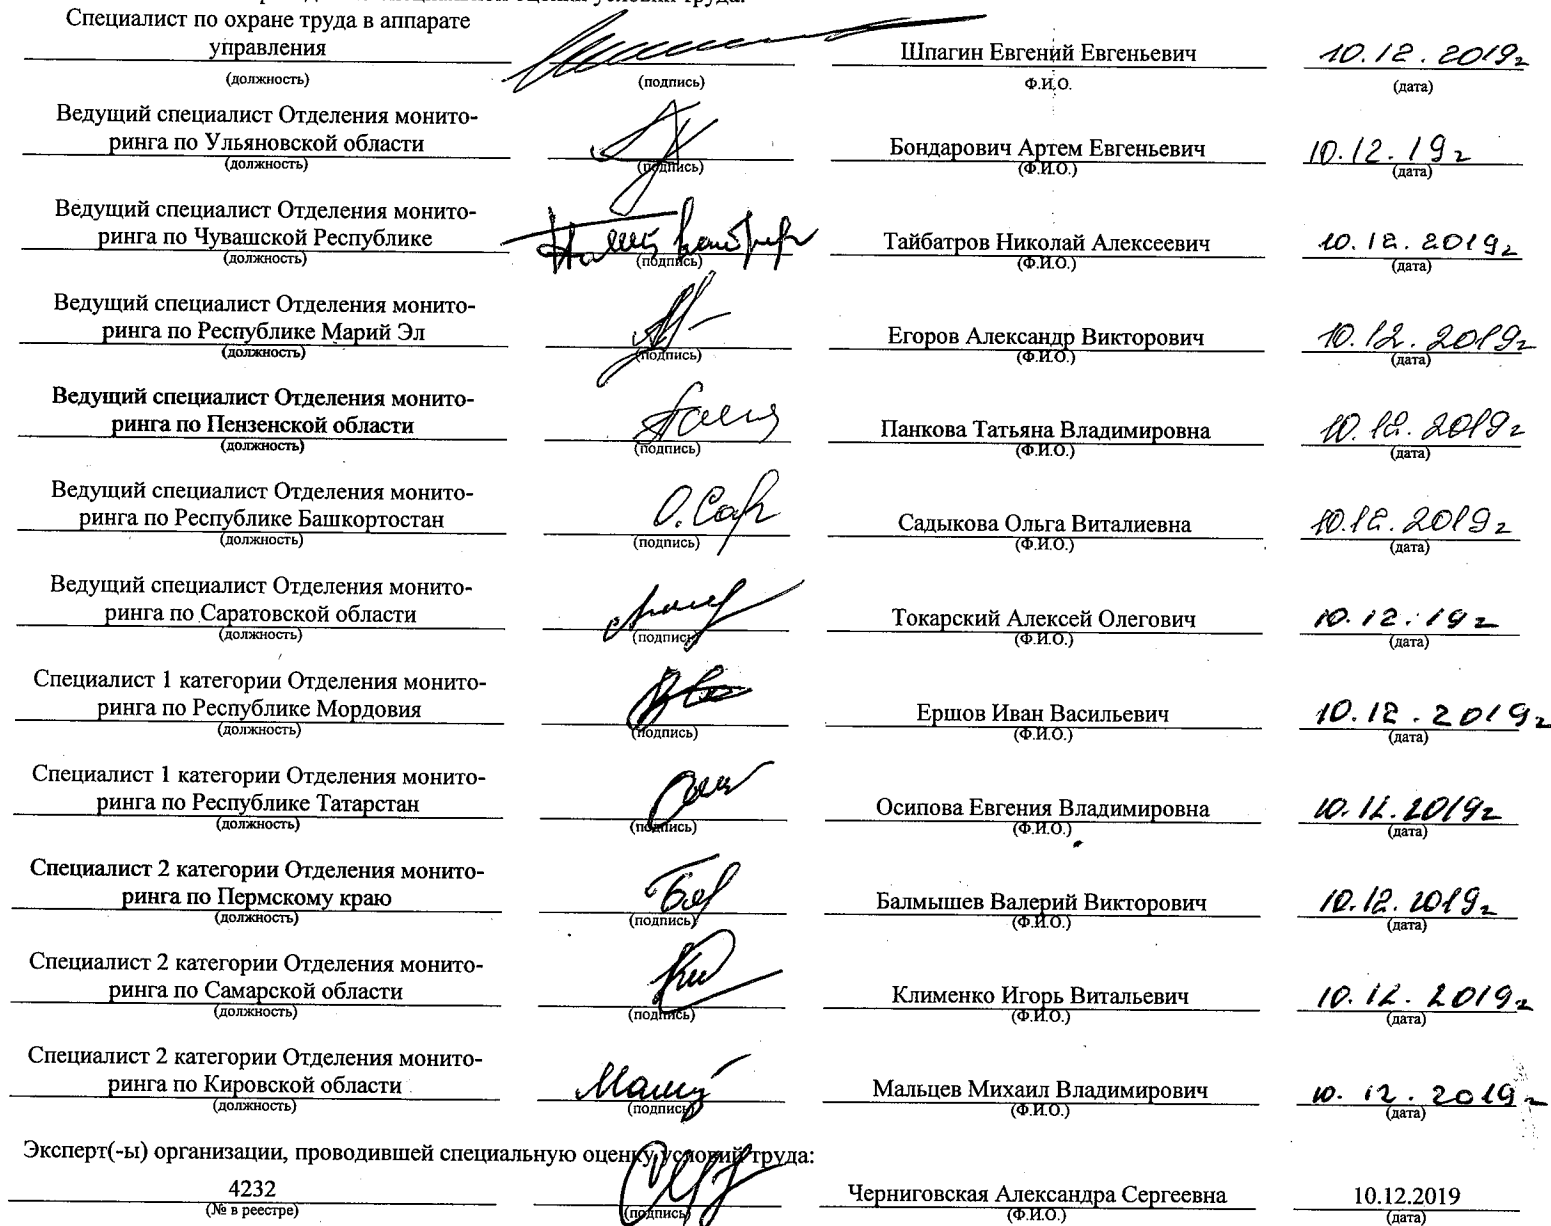 специальной оценки условий труда:
Специалист по охране труда в аппарате
управления Шпагин Евгений Евгеньевич 10.12.2019г
(должность) (подпись) Ф.И.О. (дата)
Ведущий специалист Отделения монито-
ринга по Ульяновской области Бондарович Артем Евгеньевич 10.12.19г
(должность) (подпись) (Ф.И.О.) (дата)
Ведущий специалист Отделения монито-
ринга по Чувашской Республике Тайбатров Николай Алексеевич 10.12.2019г
(должность) (подпись) (Ф.И.О.) (дата)
Ведущий специалист Отделения монито-
ринга по Республике Марий Эл Егоров Александр Викторович 10.12.2019г
(должность) (подпись) (Ф.И.О.) (дата)
Ведущий специалист Отделения монито-
ринга по Пензенской области Панкова Татьяна Владимировна 10.12.2019г
(должность) (подпись) (Ф.И.О.) (дата)
Ведущий специалист Отделения монито-
ринга по Республике Башкортостан Садыкова Ольга Виталиевна 10.12.2019г
(должность) (подпись) (Ф.И.О.) (дата)
Ведущий специалист Отделения монито-
ринга по Саратовской области Токарский Алексей Олегович 10.12.19г
(должность) (подпись) (Ф.И.О.) (дата)
Специалист 1 категории Отделения монито-
ринга по Республике Мордовия Ершов Иван Васильевич 10.12.2019г
(должность) (подпись) (Ф.И.О.) (дата)
Специалист 1 категории Отделения монито-
ринга по Республике Татарстан Осипова Евгения Владимировна 10.12.2019г
(должность) (подпись) (Ф.И.О.) (дата)
Специалист 2 категории Отделения монито-
ринга по Пермскому краю Балмышев Валерий Викторович 10.12.2019г
(должность) (подпись) (Ф.И.О.) (дата)
Специалист 2 категории Отделения монито-
ринга по Самарской области Клименко Игорь Витальевич 10.12.2019г
(должность) (подпись) (Ф.И.О.) (дата)
Специалист 2 категории Отделения монито-
ринга по Кировской области Мальцев Михаил Владимирович 10.12.2019г
(должность) (подпись) (Ф.И.О.) (дата)
Эксперт(-ы) организации, проводившей специальную оценку условий труда:
4232 Черниговская Александра Сергеевна 10.12.2019
(№ в реестре) (подпись) (Ф.И.О.) (дата)